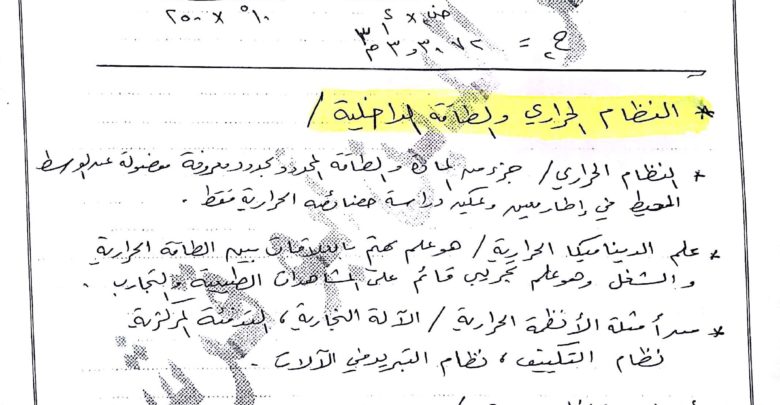 ض × ٤
١٠ ٥ × ٢٥٠
ح٢ = ٣,٠٧٢ م٣
* النظام الحراري والطاقة الداخلية /
* النظام الحراري / جزء من المادة والطاقة المحدد بحدود معروفة مفصولة عن الوسط
المحيط في إطار معين ويمكن دراسة خصائصه الحرارية فقط .
* علم الديناميكا الحرارية / هو علم يهتم بالعلاقات بين الطاقة الحرارية
والشغل وهو علم تجريبي قائم على المشاهدات الطبيعية والتجارب .
* من أمثلة الأنظمة الحرارية / الآلة البخارية ، التدفئة المركزية
نظام التكييف ، نظام التبريد في الآلات .